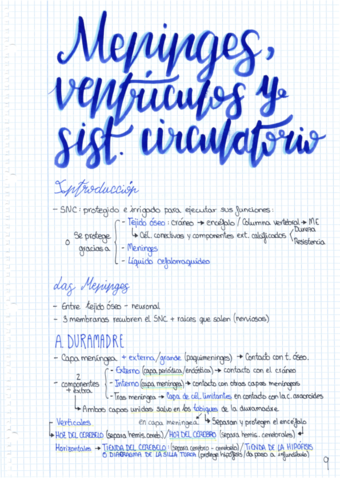 Meninges,
ventrículos y
sist. circulatorio
Introducción
- SNC: protegido e irrigado para ejecutar sus funciones:
o Se protege gracias a
- Tejido óseo: cráneo → encéfalo / Columna vertebral → ME
↳ Cél. conectivas y componentes ext. calcificados
Dureza
Resistencia
- Meninges
- Líquido cefalorraquídeo
Las Meninges
- Entre tejido óseo - neuronal
- 3 membranas recubren el SNC + raíces que salen (nerviosos)
A. DURAMADRE
- Capa meníngea + externa/grande (paquimeninges) → Contacto con t. óseo.
- 2 componentes + extra
- Externo (capa perióstica/endóstica) → contacto con el cráneo
- Interno (capa meníngea) → contacto con otras capas meníngeas
- Tras meníngea → capa de cél. limitantes en contacto con la c. aracnoides
↳ Ambas capas unidas salvo en los tabiques de la duramadre.
en capa meníngea ↳ Separan y protegen el encéfalo
- Verticales
↳ HOZ DEL CEREBELO (separa hemis. cereb.) / HOZ DEL CEREBRO (separa hemis. cerebrales)
Horizontales → TIENDA DEL CEREBELO (separa cerebro - cerebelo) / TIENDA DE LA HIPÓFISIS
O DIAFRAGMA DE LA SILLA TURCA (protege hipófisis / da paso a infundíbulo)
9